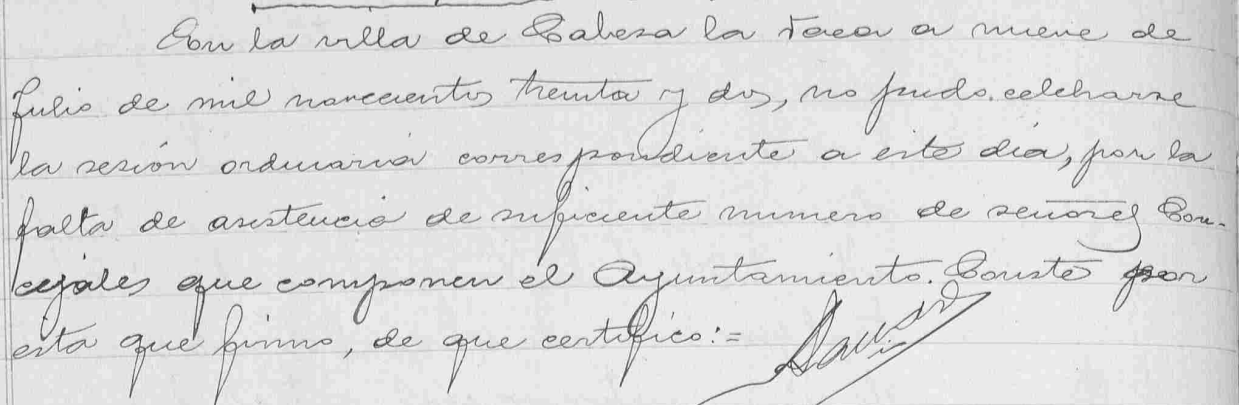 En la villa de Cabeza la Vaca a nueve de
Julio de mil novecientos treinta y dos, no pudo celebrarse
la sesión ordinaria correspondiente a este día, por la
falta de asistencia de suficiente numero de señores Con-
cejales que componen el Ayuntamiento. Conste por
esta que firmo, de que certifico:=